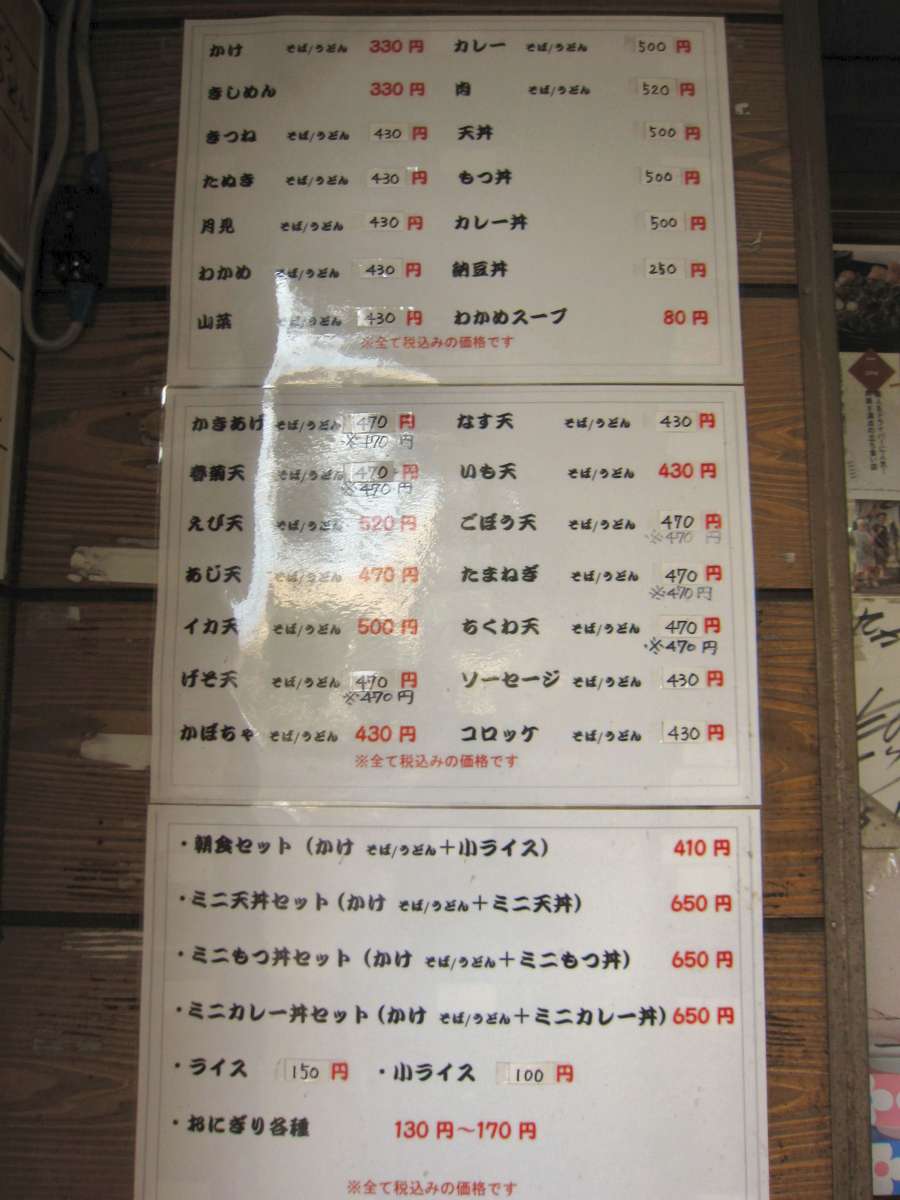 かけ そば/うどん 330円 カレー そば/うどん 500円
きしめん 330円 肉 そば/うどん 520円
きつね そば/うどん 430円 天丼 500円
たぬき そば/うどん 430円 もつ丼 500円
月見 そば/うどん 430円 カレー丼 500円
わかめ そば/うどん 430円 納豆丼 250円
山菜 そば/うどん 430円 わかめスープ 80円
※全て税込みの価格です
かきあげ そば/うどん 470円 なす天 そば/うどん 430円
※470円
春菊天 そば/うどん 470円 いも天 そば/うどん 430円
※470円
えび天 そば/うどん 520円 ごぼう天 そば/うどん 470円
※470円
あじ天 そば/うどん 470円 たまねぎ そば/うどん 470円
※470円
イカ天 そば/うどん 500円 ちくわ天 そば/うどん 470円
※470円
げそ天 そば/うどん 470円 ソーセージ そば/うどん 430円
※470円
かぼちゃ そば/うどん 430円 コロッケ そば/うどん 430円
※全て税込みの価格です
・朝食セット(かけ そば/うどん+小ライス) 410円
・ミニ天丼セット(かけ そば/うどん+ミニ天丼) 650円
・ミニもつ丼セット(かけ そば/うどん+ミニもつ丼) 650円
・ミニカレー丼セット(かけ そば/うどん+ミニカレー丼) 650円
・ライス 150円 ・小ライス 100円
・おにぎり各種 130円〜170円
※全て税込みの価格です